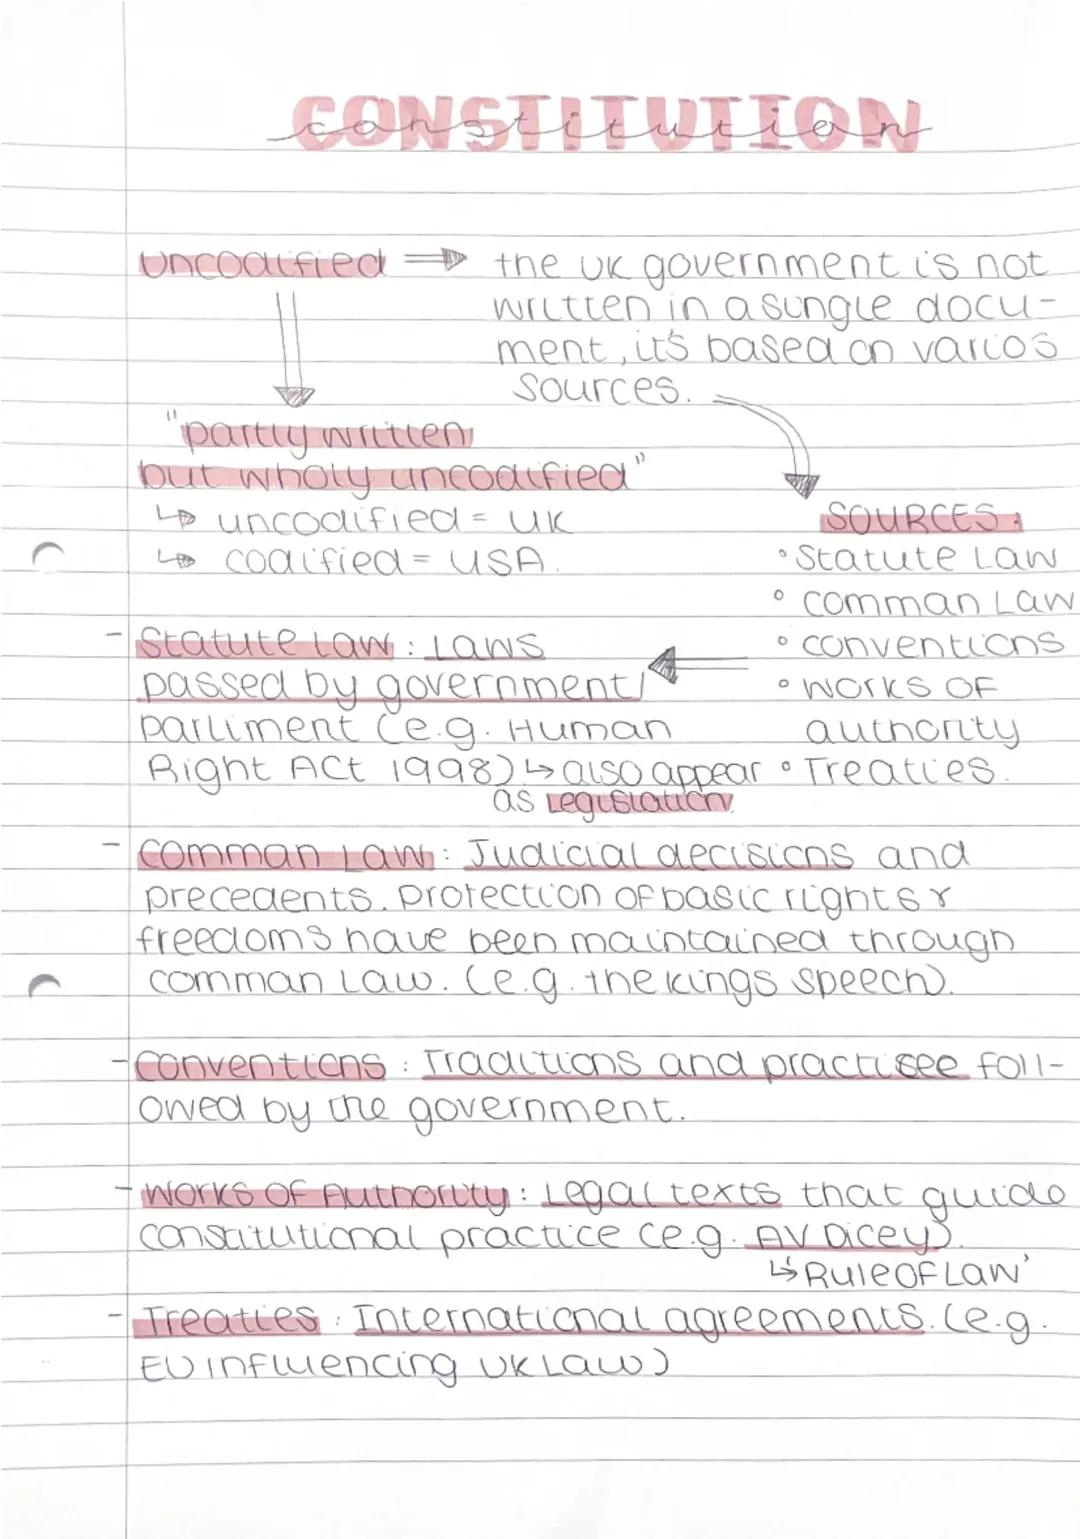 CONSTITUTION
constitution
uncodified ⇒ the UK government is not
written in a single docu-
ment, it's based on varios
sources.
"partly written
but wholy uncodified"
↳ uncodified = UK
↳ codified = USA.
SOURCES:
• Statute Law
• comman Law
• conventions
• works of
authority
• Treaties.
- Statute Law: Laws
passed by government/
parliment (e.g. Human
Right Act 1998) ↳ also appear
as legislation
- comman Law: Judicial decisions and
precedents. Protection of basic rights &
freedoms have been maintained through
comman Law. (e.g. the kings speech).
- Conventions: Traditions and practisee foll-
owed by the government.
- Works of Authority: Legal texts that guide
constitutional practice (e.g. AV Dicey).
↳'Rule of Law'
- Treaties: International agreements. (e.g.
EU influencing UK Law)